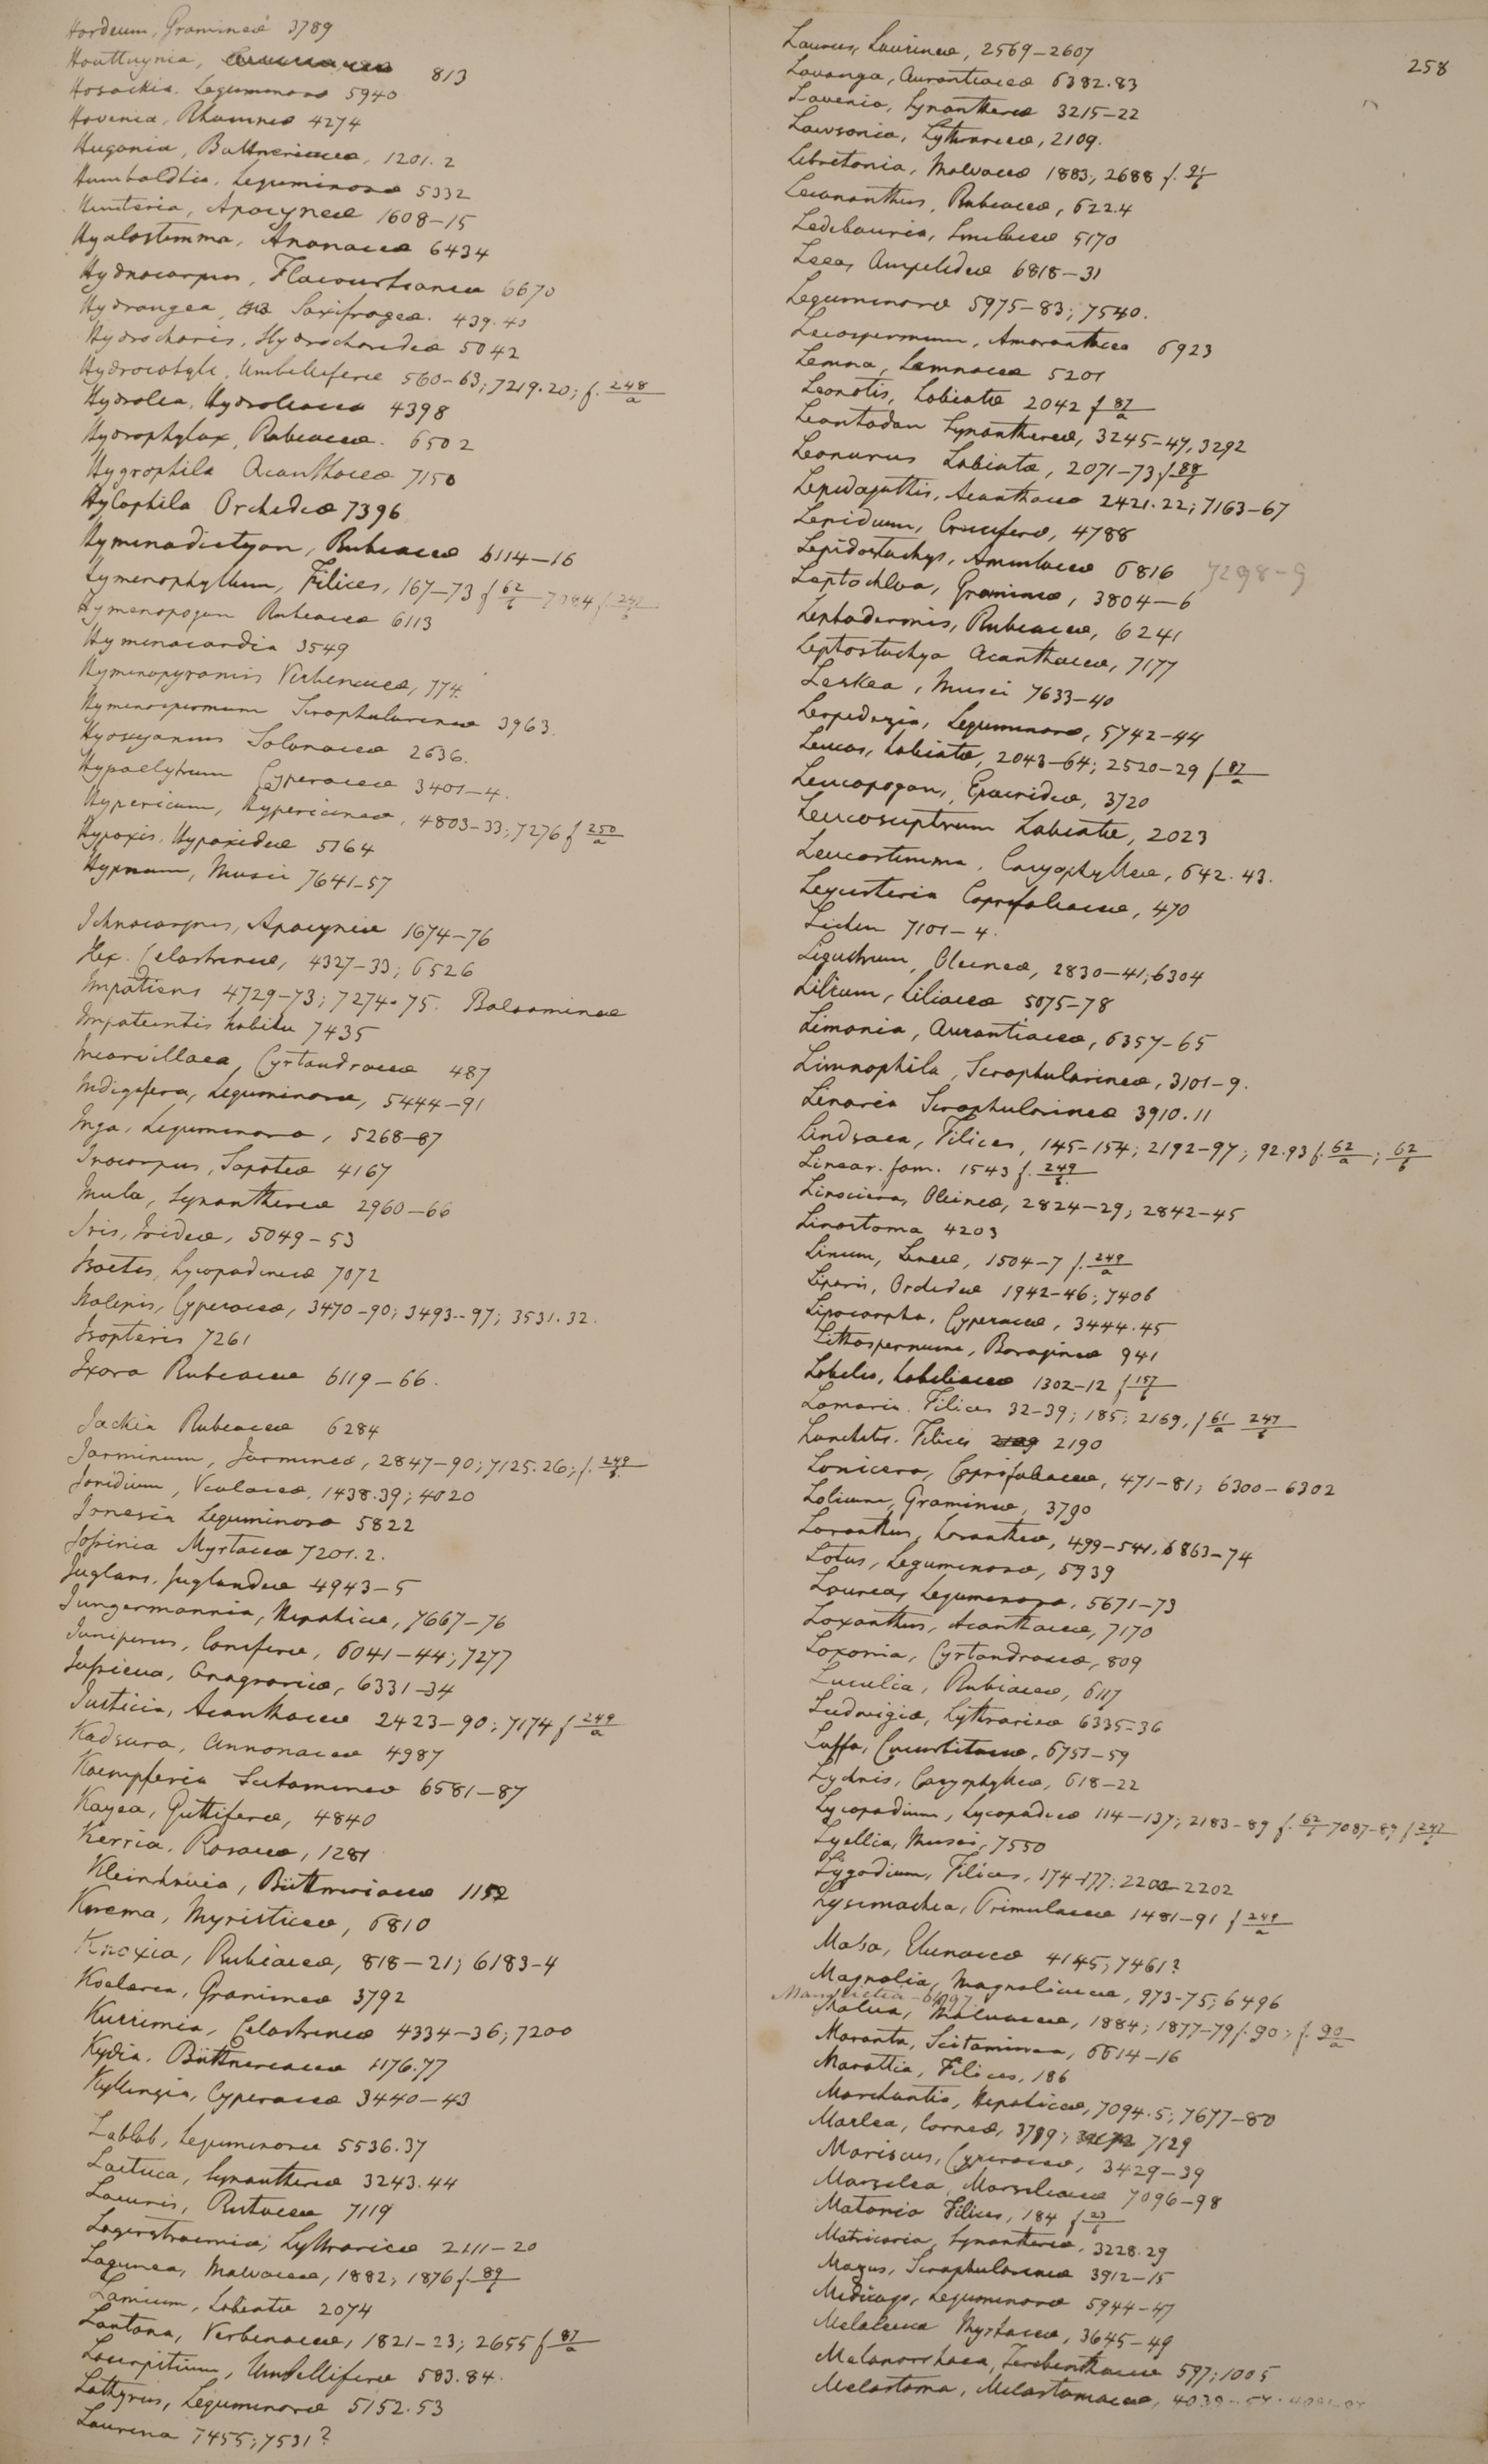 Hordeum, Gramineæ 3789
Houttuynia, 813
Hosackia. Leguminosæ 5940
Hovenia, Rhamneæ 4274
Hugonia, Büttneriaceæ, 1201.2
Humboldtia. Leguminosæ 5332
Hunteria, Apocyneæ 1608-15
Hyalostemma, Anonaceæ 6434
Hydnocarpus, Flacourtianeæ 6670
Hydrangea, Saxifrageæ. 439.40
Hydrocharis, Hydrocharideæ 5042
Hydrocotyle, Umbelliferæ 560-63; 7219.20; f. 248/a
Hydrolea, Hydroleaceæ 4398
Hydrophylax, Rubiaceæ. 6502
Hygrophila Acanthaceæ 7150
Hylophila Orchideæ 7396
Hymenodictyon, Rubiaceæ 6114-16
Hymenophyllum, Filices, 167-73 f 62/b 7084 f. 247/b
Hymenopogon Rubiaceæ 6113
Hymenocardia 3549
Hymenopyramis Verbenaceæ, 774.
Hymenospermum Scrophularineæ 3963.
Hyoscyamus Solanaceæ 2636.
Hypaelytrum Cyperaceæ 3401-4.
Hypericum, Hypericineæ, 4803-33; 7276 f 250/a
Hypoxis. Hypoxideæ 5764
Hypnum, Musci 7641-57
Ichnocarpus, Apocyneæ 1674-76
Ilex. Celastrineæ, 4327-33; 6526
Impatiens 4729-73; 7274-75. Balsamineæ
Impatientis habitu 7435
Incarvillaea, Cyrtandraceæ 487
Indigofera, Leguminosæ, 5444-91
Inga, Leguminosæ, 5268-87
Inocarpus, Sapoteæ 4167
Inula, Synanthereæ 2960-66
Iris, Irideæ, 5049-53
Isoetes, Lycopodineæ 7072
Isolepis, Cyperaceæ, 3470-90; 3493-97; 3531.32.
Isopteris 7261
Ixora Rubiaceæ 6119-66.
Jackia Rubiaceæ 6284
Jasminum, Jasmineæ, 2847-90; 7125.26; f. 249/b
Jonidium, Violaceæ, 1438.39; 4020
Jonesia Leguminosæ 5822
Jossinia Myrtaceæ 7201.2.
Juglans. Juglandeæ 4943-5
Jungermannia, Hepaticæ, 7667-76
Juniperus, Coniferæ, 6041-44; 7277
Jussieua, Onagrariæ, 6331-34
Justicia, Acanthaceæ 2423-90; 7174 f 249/a
Kadsura, Annonaceæ 4987
Kaempferia Scitamineæ 6581-87
Kayea, Guttiferæ, 4840
Kerria, Rosaceæ, 1281
Kleinhovia, Büttneriaceæ 1152
Knema, Myristiceæ, 6810
Knoxia, Rubiaceæ, 818-21; 6183-4
Koeleria, Gramineæ 3792
Kurrimia, Celastrineæ 4334-36; 7200
Kydia. Büttneriaceæ 1176.77
Kyllingia, Cyperaceæ 3440-43
Lablab, Leguminosæ 5536.37
Lactuca, Synanthereæ 3243.44
Lacuris, Rutaceæ 7119
Lagerstroemia, Lythrarieæ 2111-20
Lagunea, Malvaceæ, 1882; 1876 f. 89/b
Lamium, Labiatæ 2074
Lantana, Verbenaceæ, 1821-23; 2655 f 87/a
Laserpitium, Umbelliferæ 583.84.
Lathyrus, Leguminosæ 5152.53
Laurina 7455; 7531?
258
Laurus, Laurineæ, 2569-2607
Lavanga, Aurantiaceæ 6382.83
Lavenia, Synanthereæ 3215-22
Lawsonia, Lythrarieæ, 2109.
Lebretonia, Malvaceæ 1883; 2688 f. 91/b
Lecananthus, Rubiaceæ, 6224
Ledebouria, Smilaceæ 5170
Leea, Ampelideæ 6818-31
Leguminosæ 5975-83; 7540.
Leiospermum, Amaranthaceæ 6923
Lemna, Lemnaceæ 5201
Leonotis, Labiatæ 2042 f 87/a
Leontodon Synanthereæ, 3245-47, 3292
Leonurus Labiatæ, 2071-73 f 88/b
Lepidagathis, Acanthaceæ 2421.22; 7163-67
Lepidium, Cruciferæ, 4788
Lepidostachys, Amentaceæ 6816 7298-9
Leptochloa, Gramineæ, 3804-6
Leptodermis, Rubiaceæ, 6241
Leptostachya Acanthaceæ, 7177
Leskea, Musci 7633-40
Lespedezia, Leguminosæ, 5742-44
Leucas, Labiatæ, 2043-64; 2520-29 f 87/a
Leucopogon, Epacrideæ, 3720
Leucosceptrum Labiatæ, 2023
Leucostemma, Caryophylleæ, 642.43.
Leycesteria Caprifoliaceæ, 470
Lichen 7101-4.
Ligustrum, Oleineæ, 2830-41; 6304
Lilium, Liliaceæ 5075-78
Limonia, Aurantiaceæ, 6357-65
Limnophila, Scrophularineæ, 3101-9.
Linaria Scrophularineæ 3910.11
Lindsaea, Filices, 145-154; 2192-97; 92.93 f. 62/a; 62/b
Linear. fam. 1543 f. 249/b
Linociera, Oleineæ, 2824-29; 2842-45
Linostoma 4203
Linum, Lineæ, 1504-7 f. 249/a
Liparis, Orchideæ 1942-46; 7406
Lipocarpha, Cyperaceæ, 3444.45
Lithospermum, Boragineæ 941
Lobelia, Lobeliaceæ 1302-12 f 157/b
Lomaria. Filices 32-39; 185; 2169, f 61/a 247/b
Lonchitis. Filices 2190
Lonicera, Caprifoliaceæ, 471-81; 6300-6302
Lolium, Gramineæ, 3790
Loranthus, Lorantheæ, 499-541, 6863-74
Lotus, Leguminosæ, 5939
Lourea, Leguminosæ, 5671-73
Loxanthus, Acanthaceæ, 7170
Loxonia, Cyrtandraceæ, 809
Luculia, Rubiaceæ, 6117
Ludwigia, Lythrarieæ 6335-36
Luffa, Cucurbitaceæ, 6751-59
Lychnis, Caryophylleæ, 618-22
Lycopodium, Lycopodeæ 114-137; 2183-89 f. 62/b 7087-89 f 247/b
Lyellia, Musci, 7550
Lygodium, Filices, 174-177; 2200-2202
Lysimachia, Primulaceæ 1481-91 f 249/a
Maba, Ebenaceæ 4145; 7461?
Magnolia, Magnoliaceæ, 973-75; 6496
Malva, Malvaceæ, 1884; 1877-79 f. 90; f. 90/a
Maranta, Scitamineæ, 6614-16
Marattia, Filices, 186
Marchantia, Hepaticæ, 7094.5; 7677-80
Marlea, Corneæ, 3789; 7129
Mariscus, Cyperaceæ, 3429-39
Marsilea, Marsileaceæ 7096-98
Matonia Filices, 184 f 23/b
Matricaria, Synanthereæ, 3228.29
Mazus, Scrophularineæ 3912-15
Medicago, Leguminosæ 5944-47
Melaleuca Myrtaceæ, 3645-49
Melanorrhaea, Terebinthaceæ 597; 1005
Melastoma, Melastomaceæ, 4039-